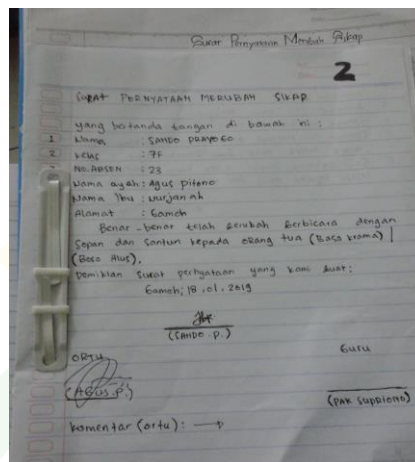 Surat Pernyataan Merubah Sikap
2
SURAT PERNYATAAN MERUBAH SIKAP
yang bertanda tangan di bawah ini :
1 Nama : SANDO PRAYOGO
2 Kelas : 7F
NO. ABSEN : 23
Nama ayah : Agus Pitono
Nama Ibu : Nurjanah
Alamat : Gameh
Benar-benar telah berubah berbicara dengan
Sopan dan santun kepada orang tua (Basa krama)
(Boso Alus).
Demikian surat pernyataan yang kami buat;
Gameh, 18, 01, 2019
(SANDO . P.)
ORTU Guru
(AGUS. P.) (PAK SUPRIONO)
komentar (ortu) : →